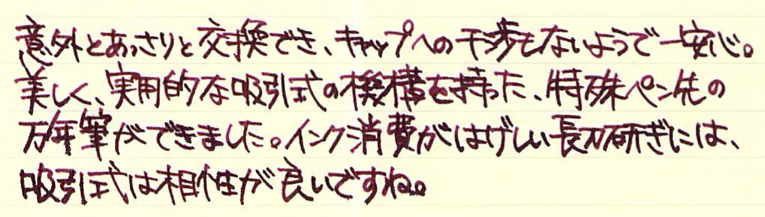 意外とあっさりと交換でき、キャップへの干渉もないようで一安心。
美しく、実用的な吸引式の機構を持った、特殊ペン先の
万年筆ができました。インク消費がはげしい長刀研ぎには、
吸引式は相性が良いですね。